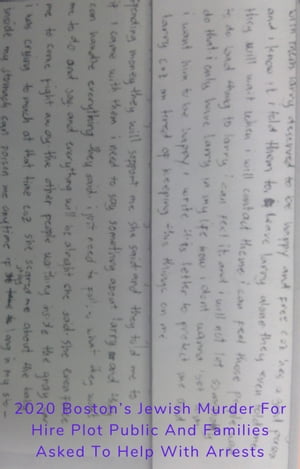 with them larry deserved to be happy and free coz he's a good person
and i know it i told them to leave larry alone they even
they will wait when i will contact theme i can feel those
to do bad thing to larry i can feel it and i will not let
do that i only have larry in my life now i dont wanna see
i want him to be happy i write this letter to protect me
larry coz am tired of keeping this things on me
spending money they will support me she said and they told me to
if i came with them i need to say something about larry and
can handle everything they said i just need to follow what they want
me to do and say and everything will be straight she said she even force
me to come right away the other people waiting inside the gray
i was crying to much at that time coz she about the
inside my stomach can poison me anytime if am in my
2020 Boston's Jewish Murder For
Hire Plot Public And Families
Asked To Help With Arrests